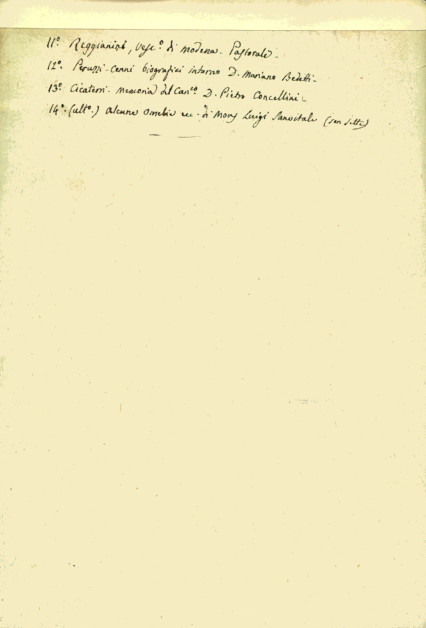 11º. Reggianini, Vesc.º di modena. Pastorale.
12º. Peruzzi. Cenni biografici intorno D. Mariano Bedetti.
13º. Cicaterri. memoria del Can.co D. Pietro Concellini.
14º. (ult.º) alcune Omelie ec. di Mons Luigi Sanvitale